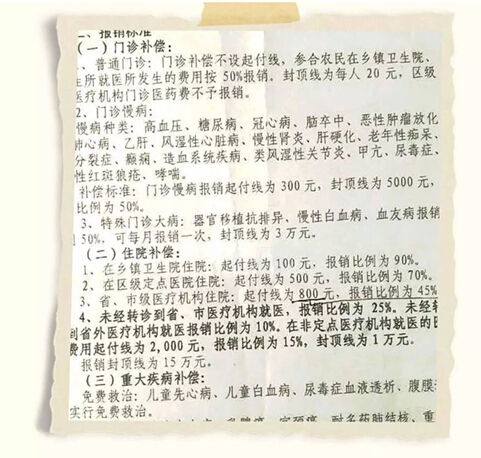 二、报销标准
(一)门诊补偿:
、普通门诊:门诊补偿不设起付线,参合农民在乡镇卫生院、
生所就医所发生的费用按50%报销。封顶线为每人20元,区级
医疗机构门诊医药费不予报销。
2、门诊慢病:
慢病种类:高血压、糖尿病、冠心病、脑卒中、恶性肿瘤放化
肺心病、乙肝、风湿性心脏病、慢性肾炎、肝硬化、老年性痴呆、
分裂症、癫痫、造血系统疾病、类风湿性关节炎、甲亢、尿毒症、
性红斑狼疮、哮喘。
补偿标准:门诊慢病报销起付线为300元,封顶线为5000元,
比例为50%。
3、特殊门诊大病:器官移植抗排异、慢性白血病、血友病报销
50%,可每月报销一次,封顶线为3万元。
(二)住院补偿:
1、在乡镇卫生院住院:起付线为100元,报销比例为90%。
2、在区级定点医院住院:起付线为500元,报销比例为70%。
3、省、市级医疗机构住院:起付线为800元,报销比例为45%
4、未经转诊到省、市医疗机构就医,报销比例为25%。未经转
到省外医疗机构就医报销比例为10%。在非定点医疗机构就医的医
费用起付线为2,000元,报销比例为15%,封顶线为1万元。
报销封顶线为15万元。
(三)重大疾病补偿:
免费救治:儿童先心病、儿童白血病、尿毒症血液透析、腹膜
实行免费救治。
乳腺癌、宫颈癌、耐多药肺结核、重